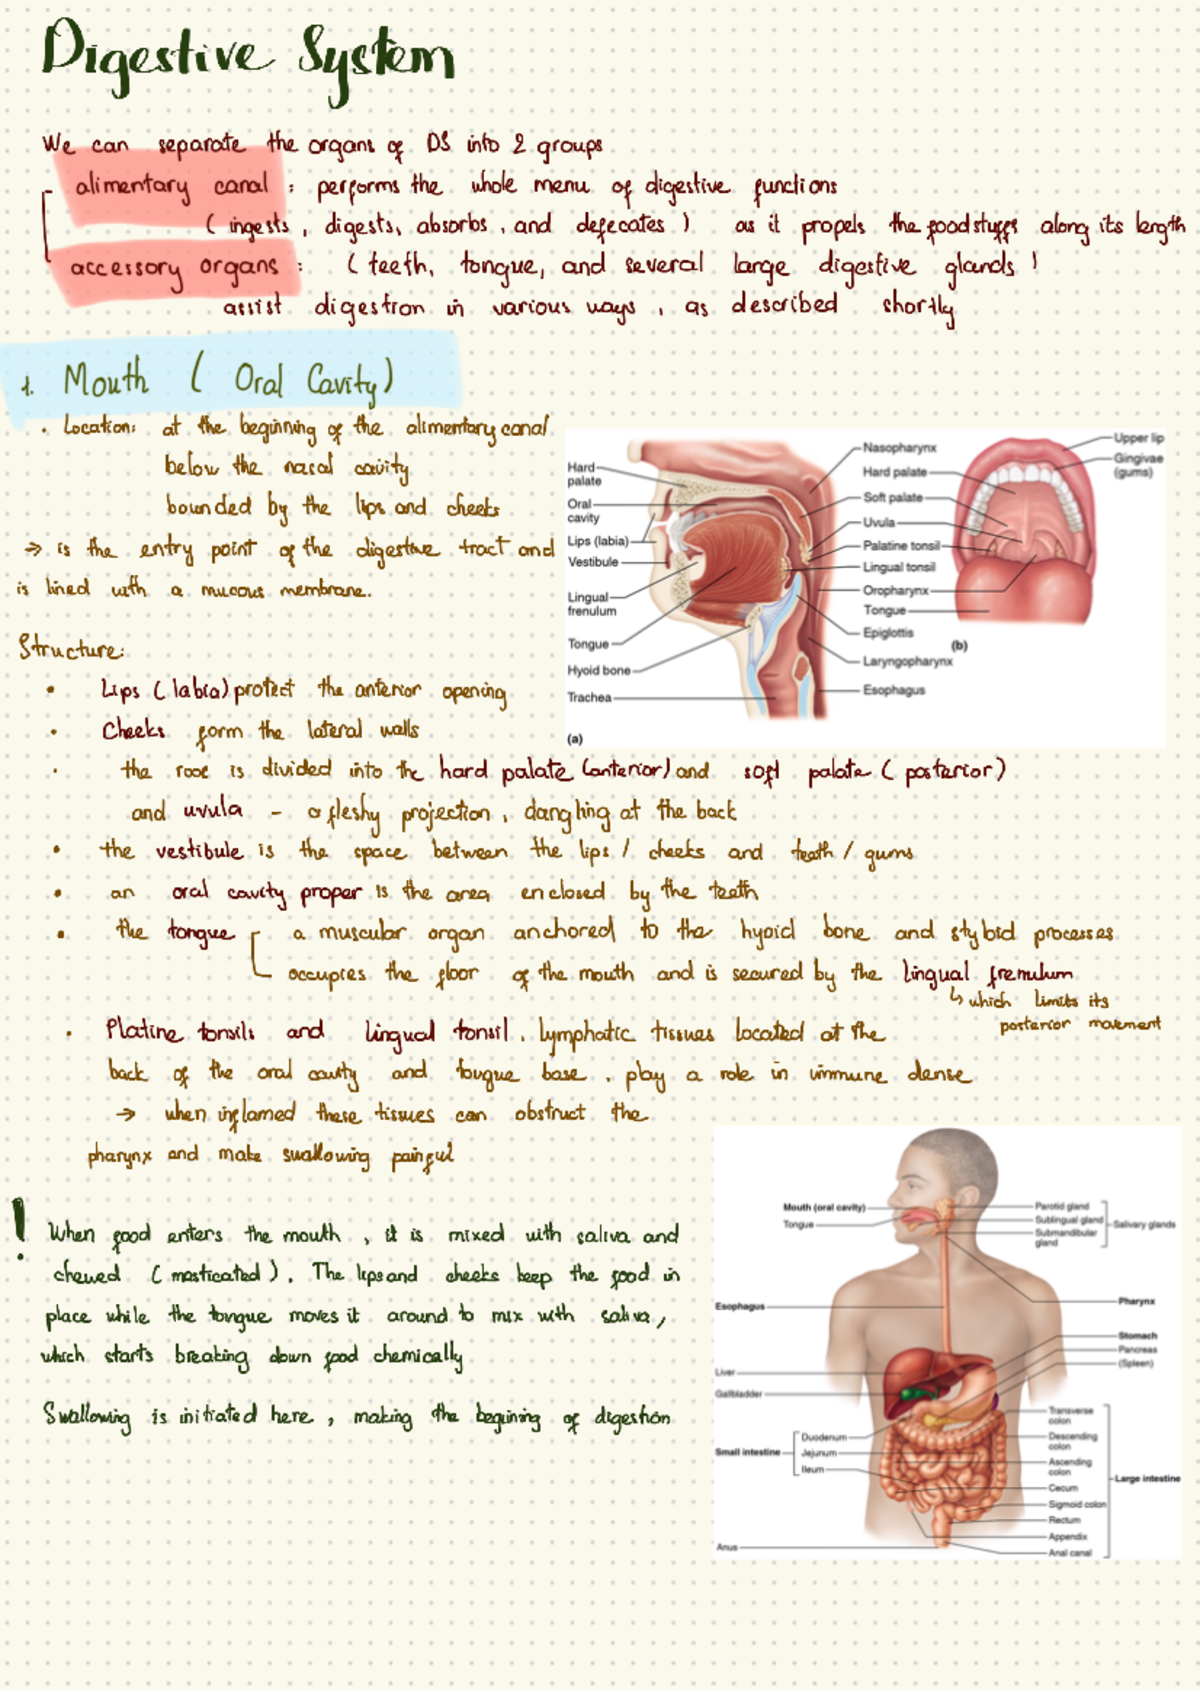 Digestive System
We can separate the organs of DS into 2 groups
alimentary canal : performs the whole menu of digestive functions
( ingests, digests, absorbs, and defecates ) as it propels the foodstuffs along its length
accessory organs : ( teeth, tongue, and several large digestive glands )
assist digestion in various ways, as described shortly
1. Mouth ( Oral Cavity)
• Location: at the beginning of the alimentary canal
below the nasal cavity
bounded by the lips and cheeks
→ is the entry point of the digestive tract and
is lined with a mucous membrane.
Hard palate
Oral cavity
Lips (labia)
Vestibule
Lingual frenulum
Tongue
Hyoid bone
Trachea
(a)
Nasopharynx
Hard palate
Soft palate
Uvula
Palatine tonsil
Lingual tonsil
Oropharynx
Tongue
Epiglottis
Laryngopharynx
Esophagus
Upper lip
Gingivae (gums)
(b)
Structure:
• Lips (labia) protect the anterior opening
• Cheeks form the lateral walls
• the roof is divided into the hard palate (anterior) and soft palate ( posterior)
and uvula - a fleshy projection, dangling at the back
• the vestibule is the space between the lips / cheeks and teeth / gums
• an oral cavity proper is the area enclosed by the teeth
• the tongue a muscular organ anchored to the hyoid bone and styloid processes
occupies the floor of the mouth and is secured by the lingual frenulum
↳ which limits its
posterior movement
• Platine tonsils and lingual tonsil, lymphatic tissues located at the
back of the oral cavity and tongue base, play a role in immune dense
→ when inflamed these tissues can obstruct the
pharynx and make swallowing painful
! When food enters the mouth, it is mixed with saliva and
chewed ( masticated ). The lips and cheeks keep the food in
place while the tongue moves it around to mix with saliva,
which starts breaking down food chemically
Swallowing is initiated here, making the begining of digestion
Mouth (oral cavity)
Tongue
Esophagus
Liver
Gallbladder
Small intestine
Duodenum
Jejunum
Ileum
Anus
Parotid gland
Sublingual gland
Submandibular gland
Salivary glands
Pharynx
Stomach
Pancreas
(Spleen)
Transverse colon
Descending colon
Ascending colon
Cecum
Sigmoid colon
Rectum
Appendix
Anal canal
Large intestine